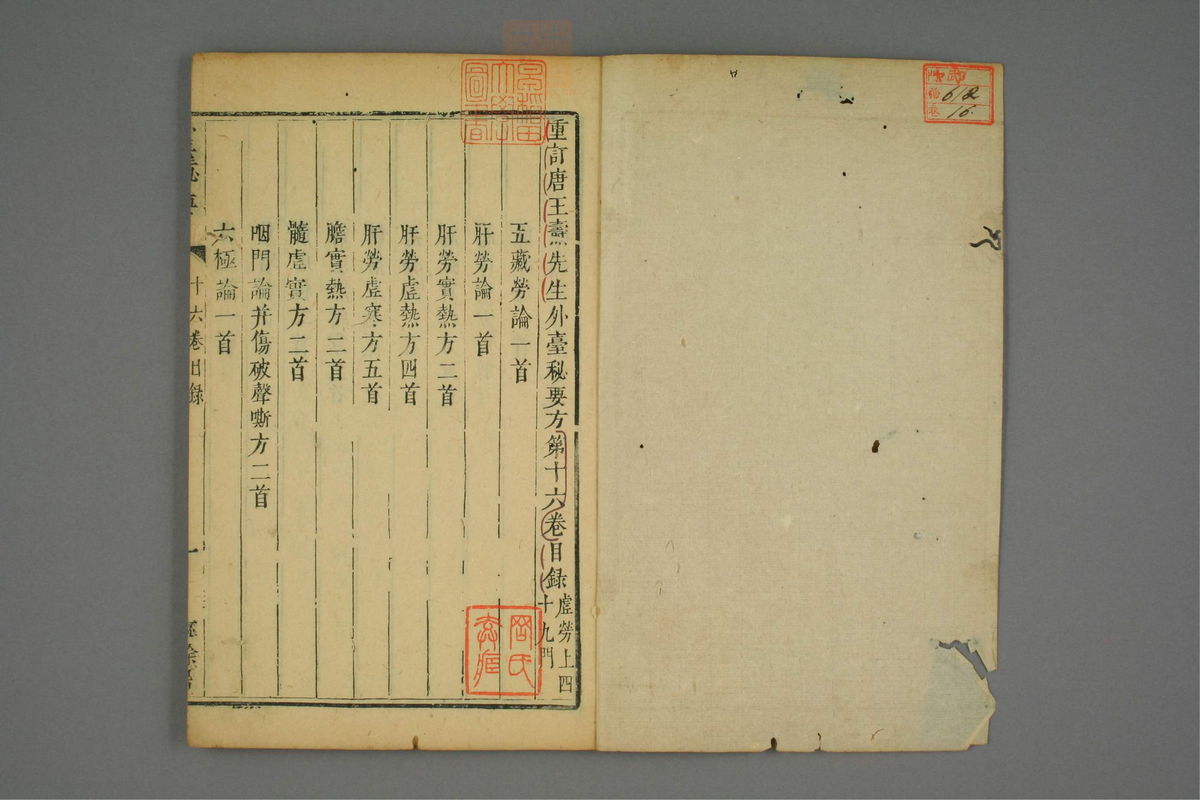 重訂唐王燾先生外臺秘要方第十六卷目錄
虛勞上四
十九門
五藏勞論一首
肝勞論一首
肝勞實熱方二首
肝勞虛熱方四首
肝勞虛寒方五首
膽實熱方二首
髓虛實方二首
咽門論并傷破聲嘶方二首
六極論一首
十六卷目錄
一
早稻田大學圖書
612
16